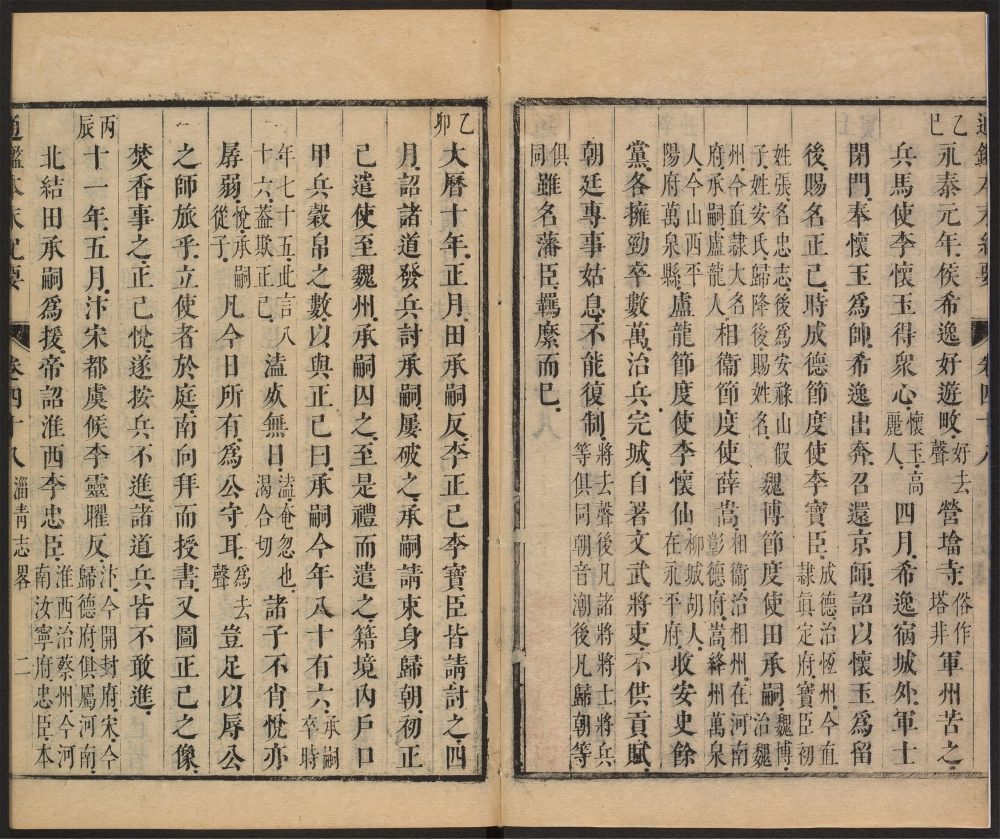 通鑑本末紀要 卷四十八
乙巳永泰元年侯希逸好遊畋好去聲營墖寺俗作塔非軍州苦之
兵馬使李懷玉得眾心懷玉高麗人四月希逸宿城外軍士
閉門奉懷玉爲帥希逸出奔召還京師詔以懷玉爲留
後賜名正己時成德節度使李寶臣成德治恆州今直隸眞定府寶臣初
姓張名忠志後爲安祿山假子姓安氏歸降後賜姓名魏博節度使田承嗣魏博治魏
州今直隸大名府承嗣盧龍人相衛節度使薛嵩相衛治相州在河南彰德府嵩絳州萬泉
人今山西平陽府萬泉縣盧龍節度使李懷仙柳城胡人在永平府收安史餘
黨各擁勁卒數萬治兵完城自署文武將吏不供貢賦
朝廷專事姑息不能復制將去聲後凡諸將將士將兵等俱同朝音潮後凡歸朝等
俱同雖名藩臣羈縻而已
乙卯大曆十年正月田承嗣反李正己李寶臣皆請討之四
月詔諸道發兵討承嗣屢破之承嗣請束身歸朝初正
己遣使至魏州承嗣囚之至是禮而遣之籍境內戶口
甲兵穀帛之數以與正己曰承嗣今年八十有六承嗣卒時
年七十五此言八十六蓋欺正己溘死無日溘奄忽也渴合切諸子不肖悅亦
孱弱悅承嗣從子凡今日所有爲公守耳爲去聲豈足以辱公
之師旅乎立使者於庭南向拜而授書又圖正己之像
焚香事之正己悅遂按兵不進諸道兵皆不敢進
丙辰十一年五月汴宋都虞候李靈曜反汴今開封府宋今歸德府俱屬河南
北結田承嗣爲援帝詔淮西李忠臣淮西治蔡州今河南汝寧府忠臣本
通鑑本末紀要 卷四十八 淄青志畧 二